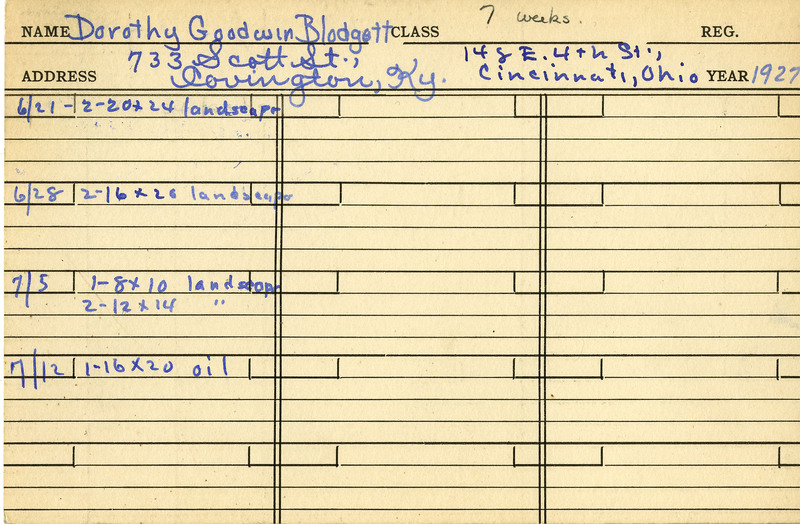 7 weeks.
NAME Dorothy Goodwin Blodgett CLASS REG.
733 Scott St., 148 E. 4th St.,
ADDRESS Covington, Ky. Cincinnati, Ohio YEAR 1927
6/21- 2-20x24 landscape
"
6/28 2-16x20 landscape
7/5 1-8x10 landscape
2-12x14 "
7/12 1-16x20 oil